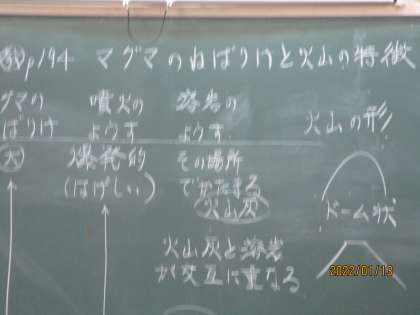 教p194 マグマのねばりけと火山の特徴
グマの 噴火の 溶岩の
ばりけ ようす ようす 火山の形
大 爆発的 その場所
(はげしい) でかたまる
火山灰
ドーム状
火山灰と溶岩
が交互に重なる
2022/01/13